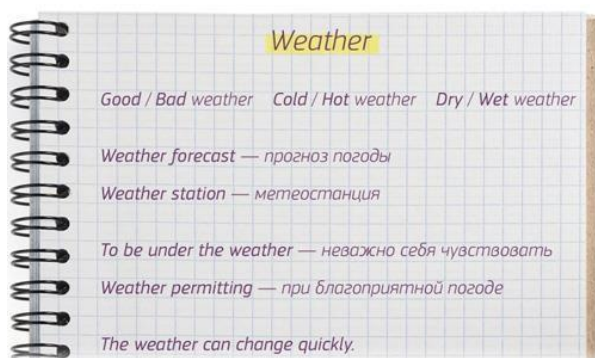 Weather
Good / Bad weather Cold / Hot weather Dry / Wet weather
Weather forecast — прогноз погоды
Weather station — метеостанция
To be under the weather — неважно себя чувствовать
Weather permitting — при благоприятной погоде
The weather can change quickly.